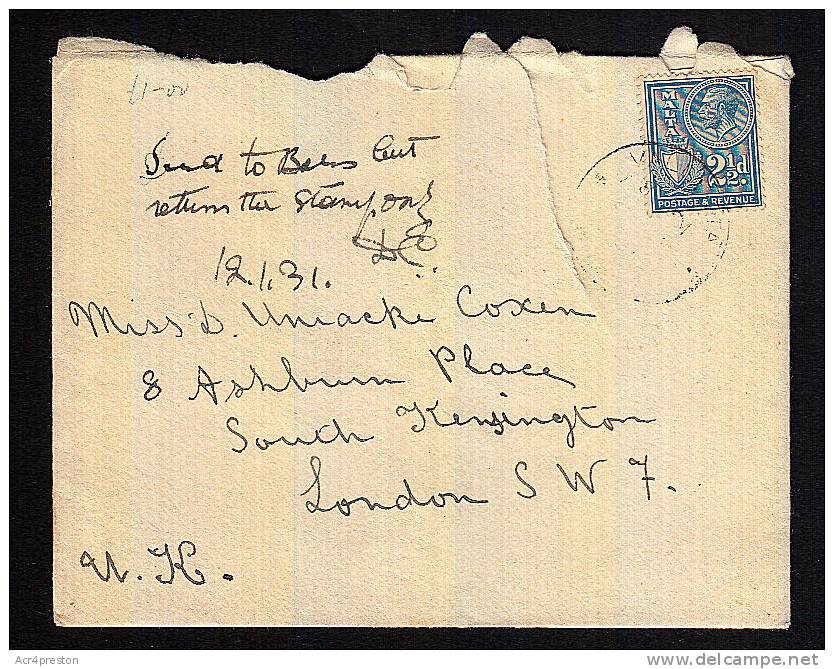 £1-00
Send to Bees but
return the stamp only
DC
12.1.31.
MALTA
2½d.
POSTAGE & REVENUE
Miss D. Uniacke Coxen
8 Ashburn Place
South Kensington
London S W 7.
U.K.
Acr4preston
delcampe.net